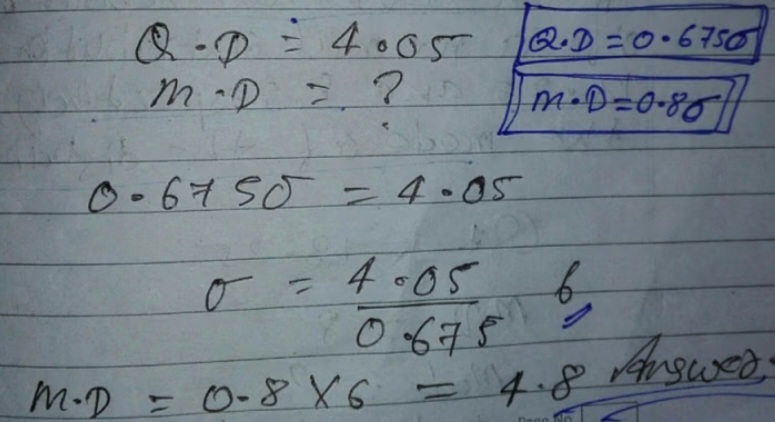 Q.D = 4.05
Q.D = 0.675σ
M.D = ?
M.D = 0.8σ
0.675σ = 4.05
σ = 4.05 / 0.675 6
M.D = 0.8 × 6 = 4.8 Answer.